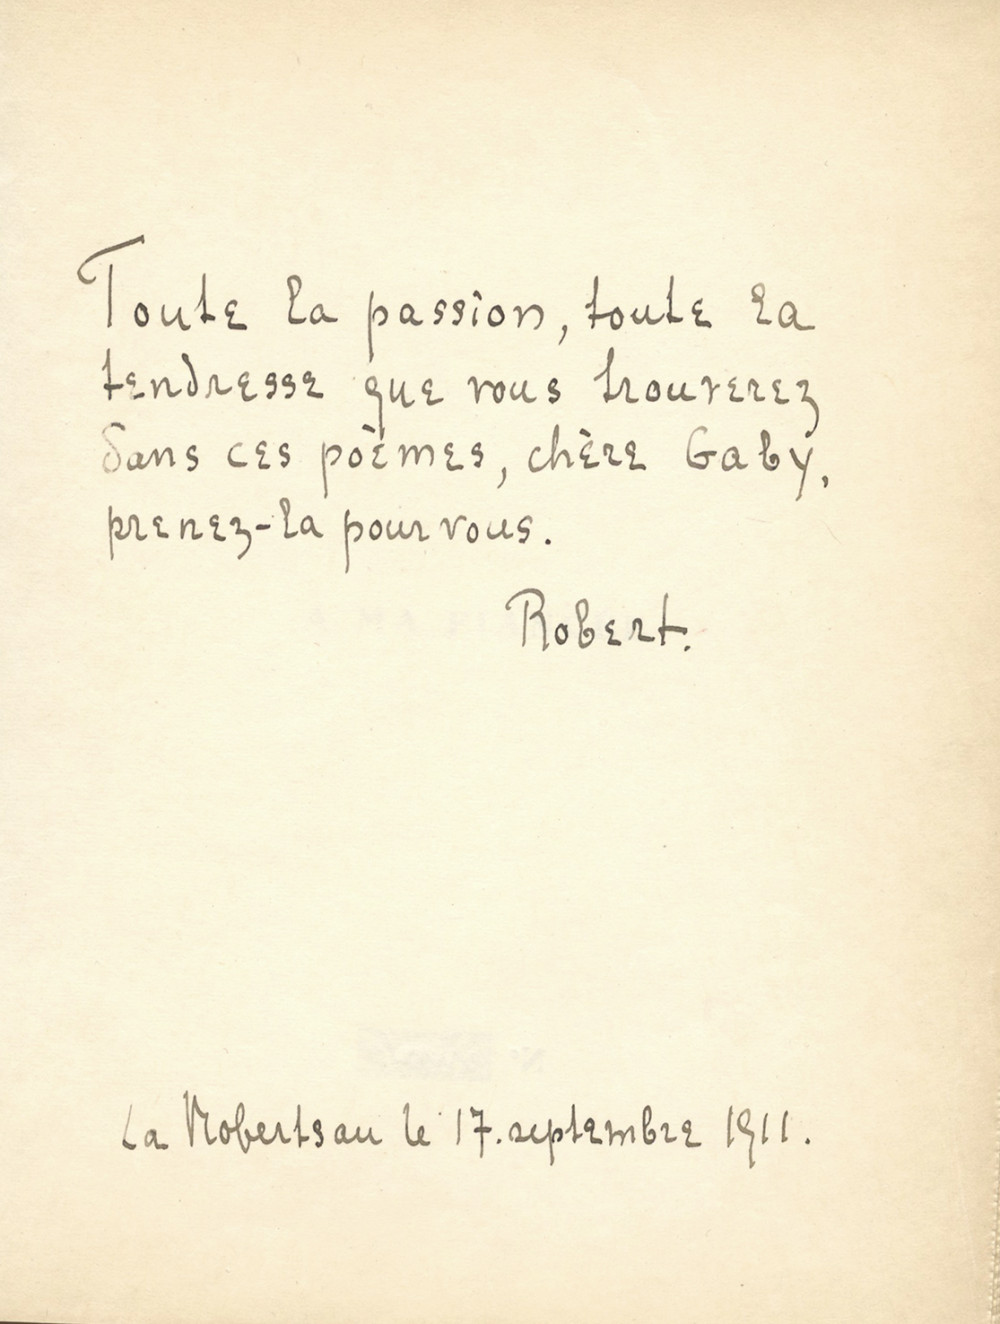 Toute la passion, toute la
tendresse que vous trouverez
dans ces poèmes, chère Gaby,
prenez-la pour vous.
Robert.
La Robertsau le 17. septembre 1911.